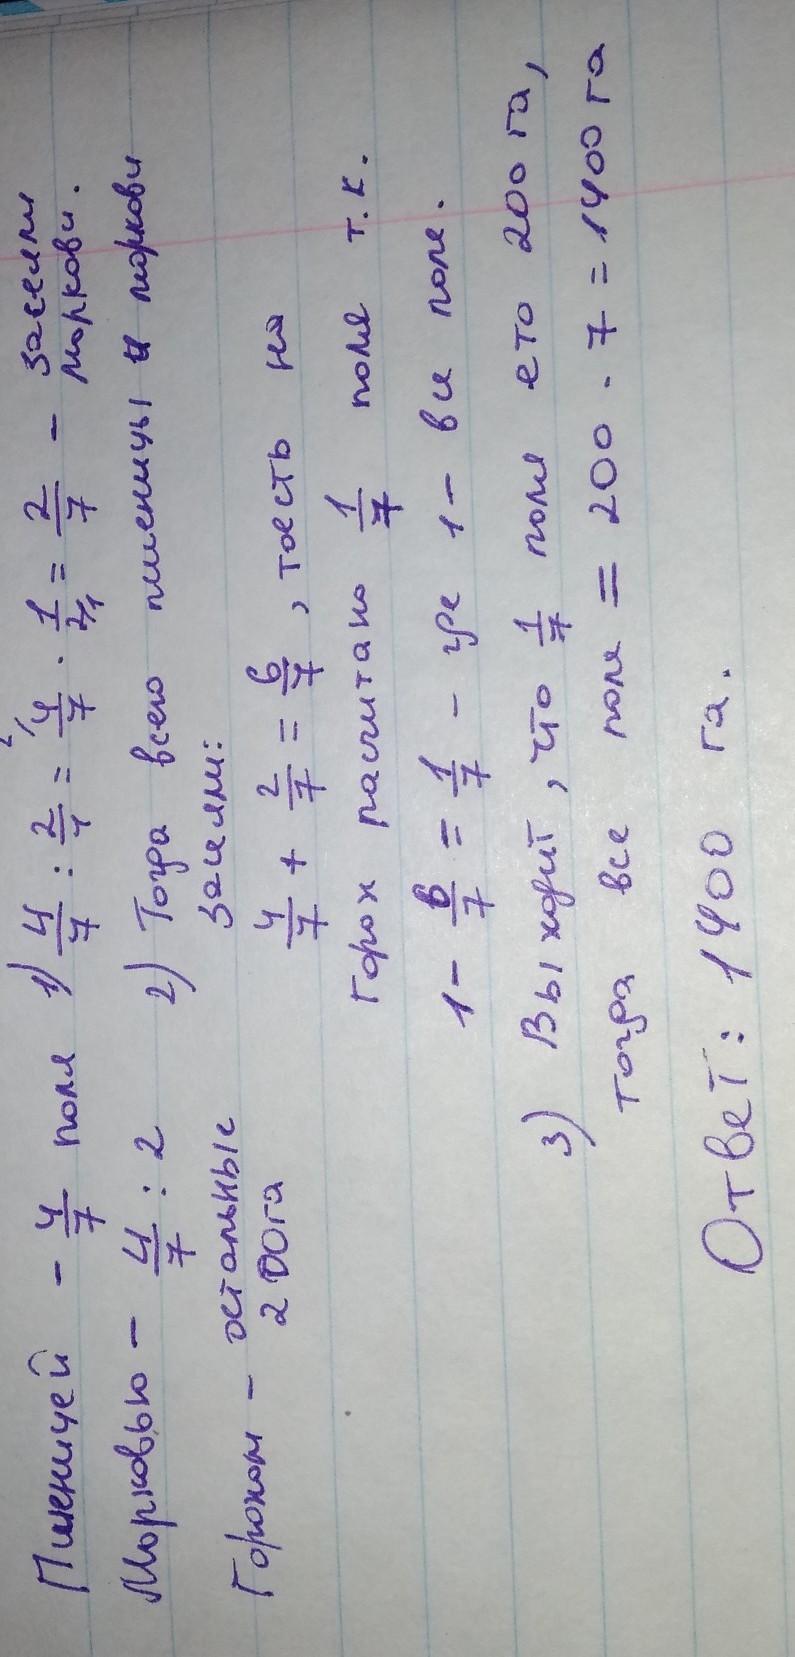 Пшеницей - 4/7 поля
Морковью - 4/7 : 2
Горохом - остальные
200га
1) 4/7 : 2/1 = 4/7 · 1/2 = 2/7 - засеяли
моркови.
2) Тогда всего пшеницы и моркови
засеяли:
4/7 + 2/7 = 6/7, тоесть на
горох расчитано 1/7 поля т.к.
1 - 6/7 = 1/7 - где 1 - все поле.
3) Выходит, что 1/7 поля ето 200 га,
тогда все поле = 200 · 7 = 1400 га
Ответ: 1400 га.